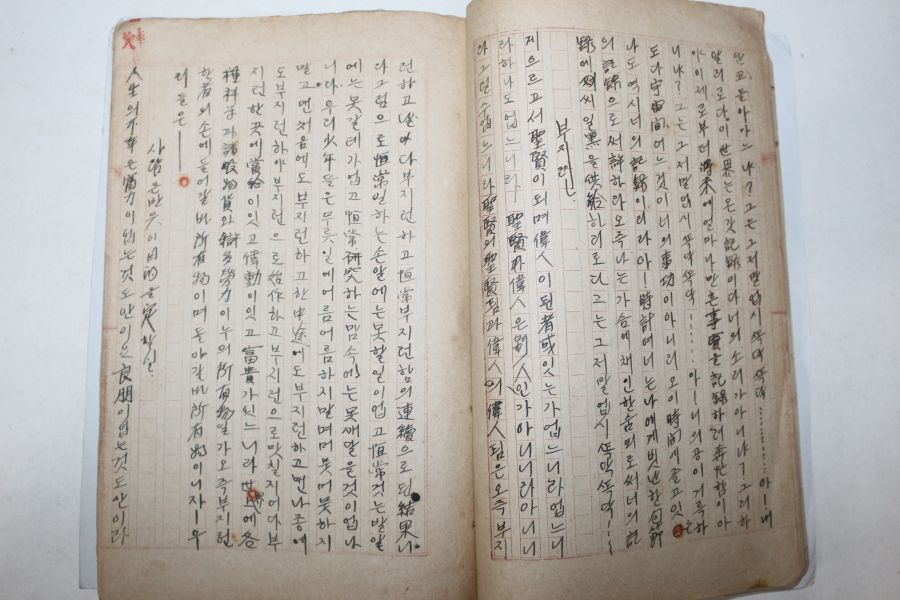 안고 을 아아느냐? 그는 그저 말업시 뚝딱 뚝딱………아! 네
알리로다 이 世界는 온갓 記錄이다 너의 소리가 아니냐? 그러하
야 이제로부터 將來에 얼마나 만흔 事項을 記錄하려 奔忙함이아
니냐? 그는 그저 말업시 뚝딱 뚝딱………아! 너의 공이 거룩하
도다 宇宙間 어느 것이 너의 事功이 아니리오 이 時間에 졸고 잇는
나도 역시 너의 記錄이리라 아! 時計여 너는 나에게 빗싼 한 句節
의 記錄으로써 許하라 오즉 나는 가슴에 채인 한숨 되로 써 너의 記
錄에 例씨일 黑을 供給하리로다 그는 그저 말업시 뚝딱 뚝딱!!
부지런
게으르고서 聖賢이 되며 偉人이 된 者 或 잇는가 업느니라 업느니
라 하나도 업느니라 聖賢과 偉人은 別人인가 아니니라 아니니
라 그런 수 업느니라 聖賢의 聖賢됨과 偉人의 偉人됨은 오즉 부지
런하고 날마다 부지런하고 恒常 부지런함의 連續으로 된 結果니
라 그럼으로 恒常 일하는 손 알에는 못할 일이 업고 恒常 것는 발 알
에는 못 갈 데가 업고 恒常 硏究하는 맘 속에는 못 깨달을 것이 업나
니라 우리 少年들은 무릇 일에 어름어름하지 말며 머뭇머뭇하지
말고 맨 처음에도 부지런하고 한 中途에도 부지런하고 맨 나종에
도 부지런하야 부지런으로 始作하고 부지런으로 맛칠지어다 부
지런한 곳에 賞給이 잇고 偉勳이 잇고 富貴가 잇느니라 世界에 各
種 科學과 諸般 物貨와 勞力이 누의 所有物일가 오즉 부지런
한 者의 손에 들어갈 바 所有物이며 돌아갈 바 所有物이니 자! 우
리들은――
사람은 반듯이 目的을 定할 일
人生의 不幸은 富力이 업는 것도 안이요 良朋이 업는 것도 안이라